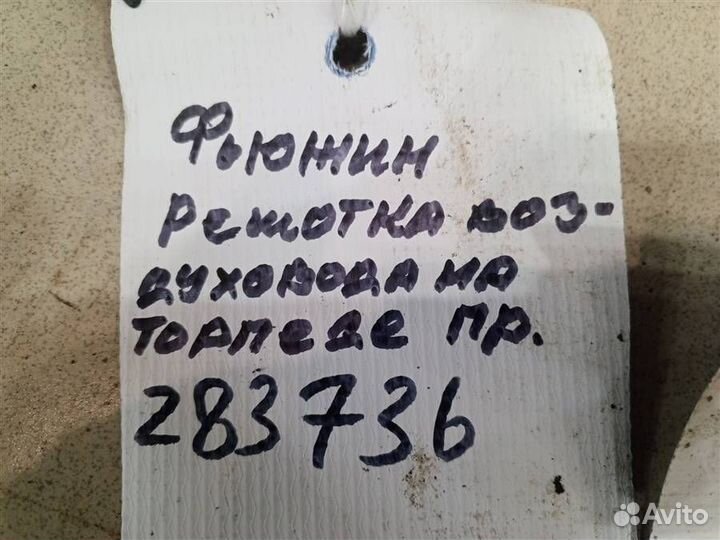 Фьюжин
Решотка воз-
духовода на
торпеде пр.
283736
Avito